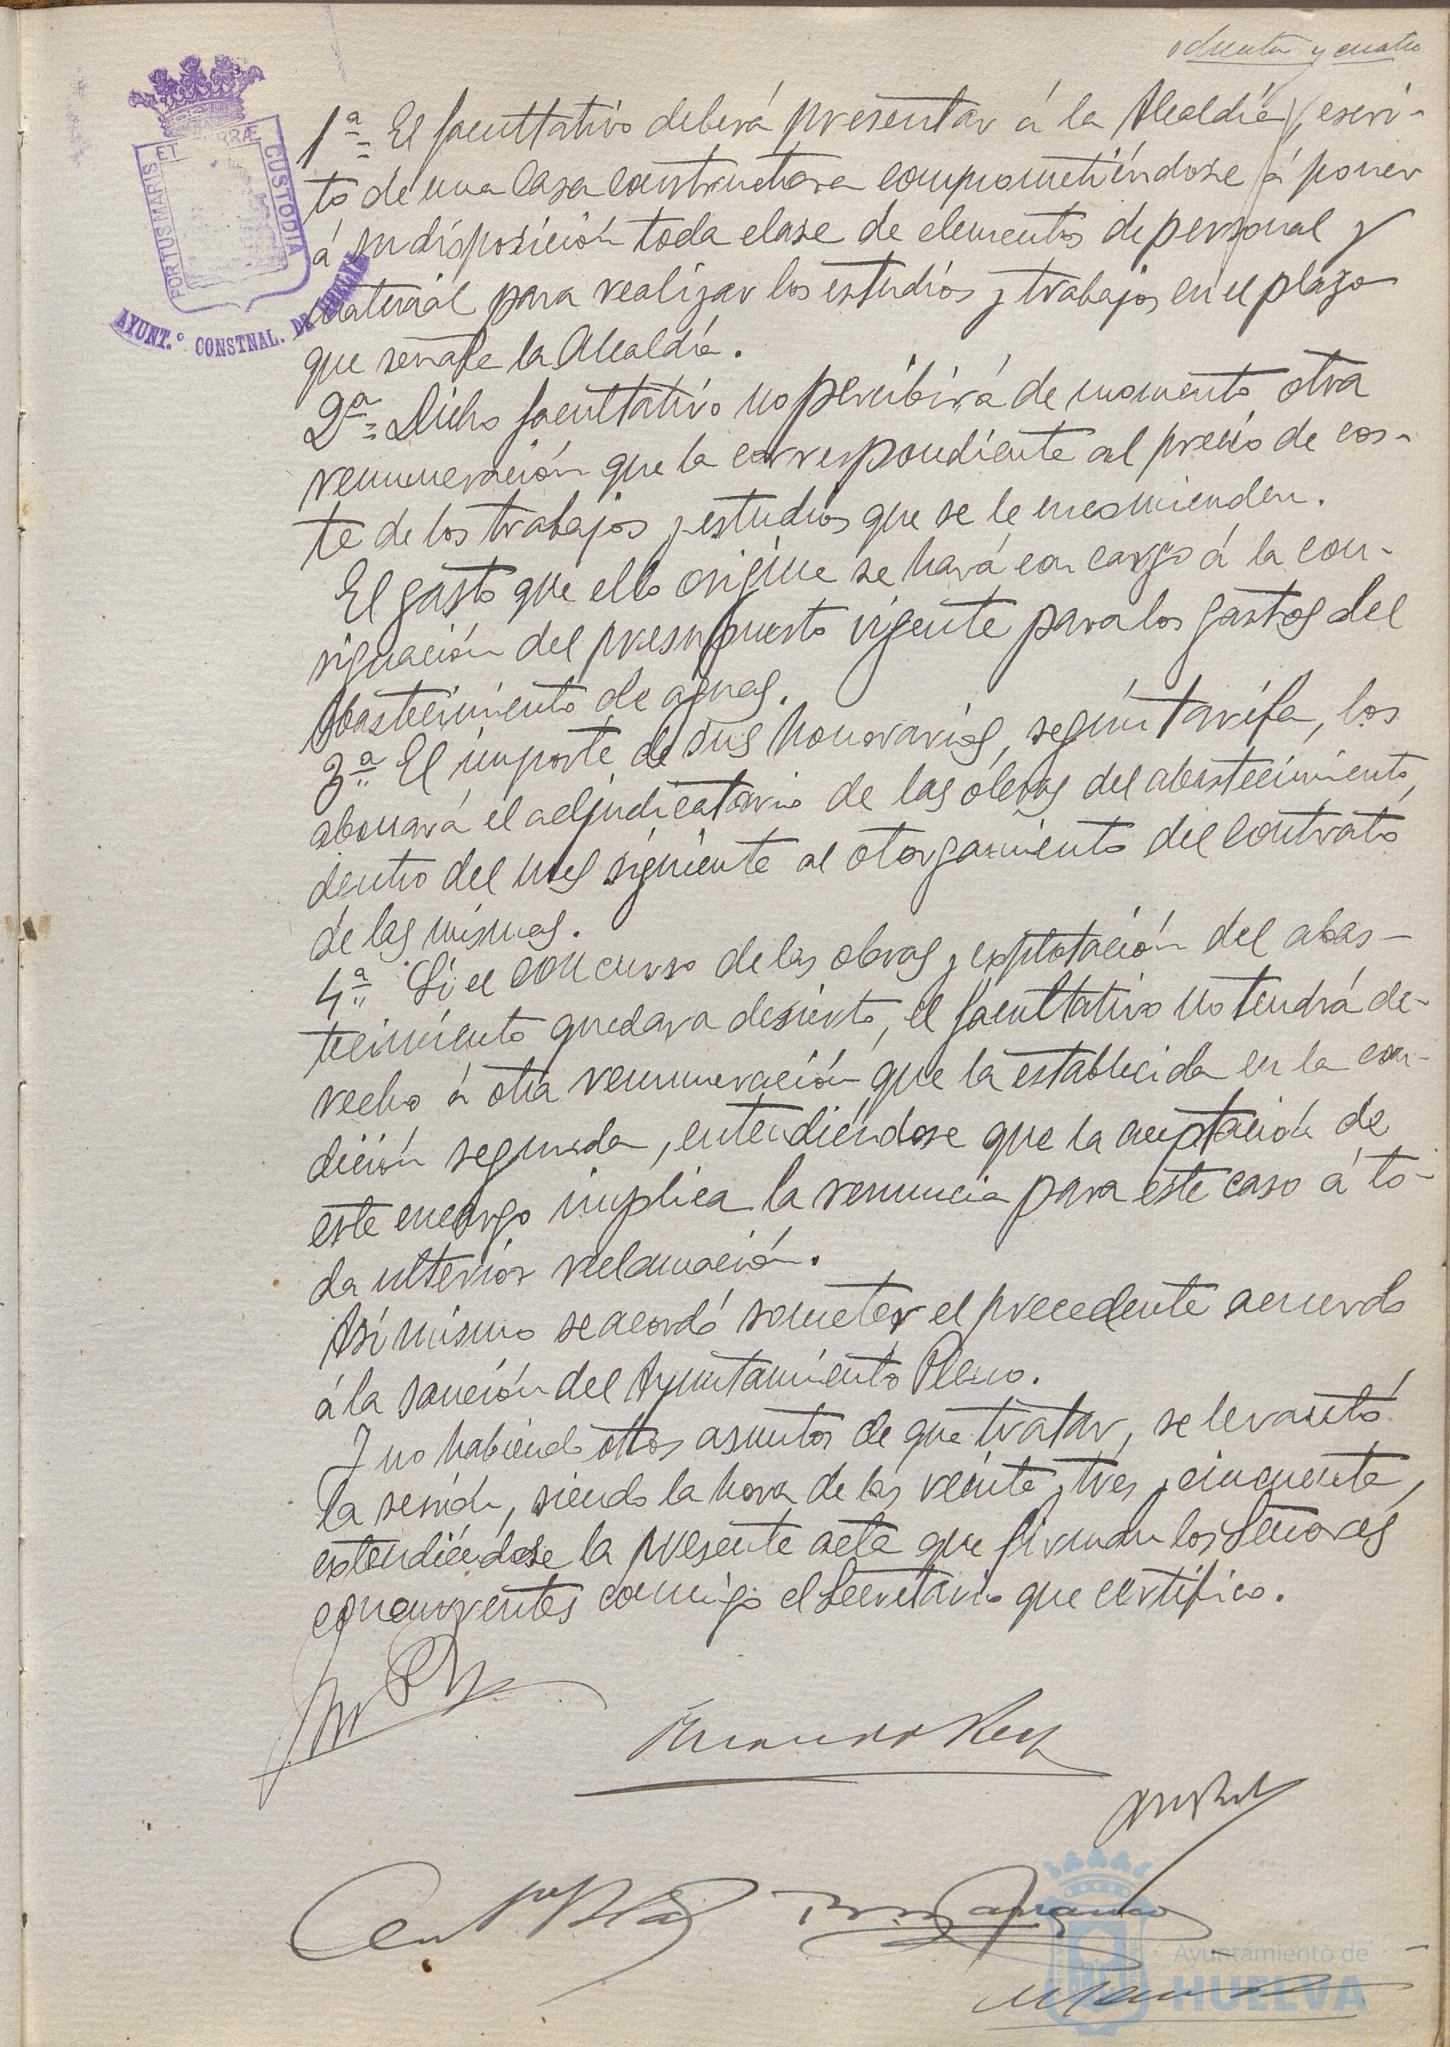 ochenta y cuatro
PORTUS MARIS ET TERRAE CUSTODIA
AYUNT.º CONSTNAL. DE HUELVA
1ª El facultativo deberá presentar á la Alcaldía, escri-
to de una Casa constructora comprometiéndose á poner
á su disposición toda clase de elementos de personal y
material para realizar los estudios y trabajos en el plazo
que señale la Alcaldía.
2ª Dicho facultativo no percibirá de momento otra
remuneración que la correspondiente al precio de cos-
te de los trabajos y estudios que se le encomienden.
El gasto que ello origine se hará con cargo á la con-
signación del presupuesto vigente para los gastos del
Abastecimiento de aguas.
3ª El importe de sus honorarios, según tarifa, los
abonará el adjudicatario de las obras del abastecimiento,
dentro del mes siguiente al otorgamiento del contrato
de las mismas.
4ª Si el concurso de las obras y explotación del abas-
tecimiento quedara desierto, el facultativo no tendrá de-
recho á otra remuneración que la establecida en la con-
dición segunda, entendiéndose que la aceptación de
este encargo implica la renuncia para este caso á to-
da ulterior reclamación.
Así mismo se acordó someter el precedente acuerdo
á la sanción del Ayuntamiento Pleno.
Y no habiendo otros asuntos de que tratar, se levantó
la sesión, siendo la hora de las veinte y tres y cincuenta,
extendiéndose la presente acta que firman los Señores
concurrentes conmigo el Secretario que certifico.
Ayuntamiento de
HUELVA